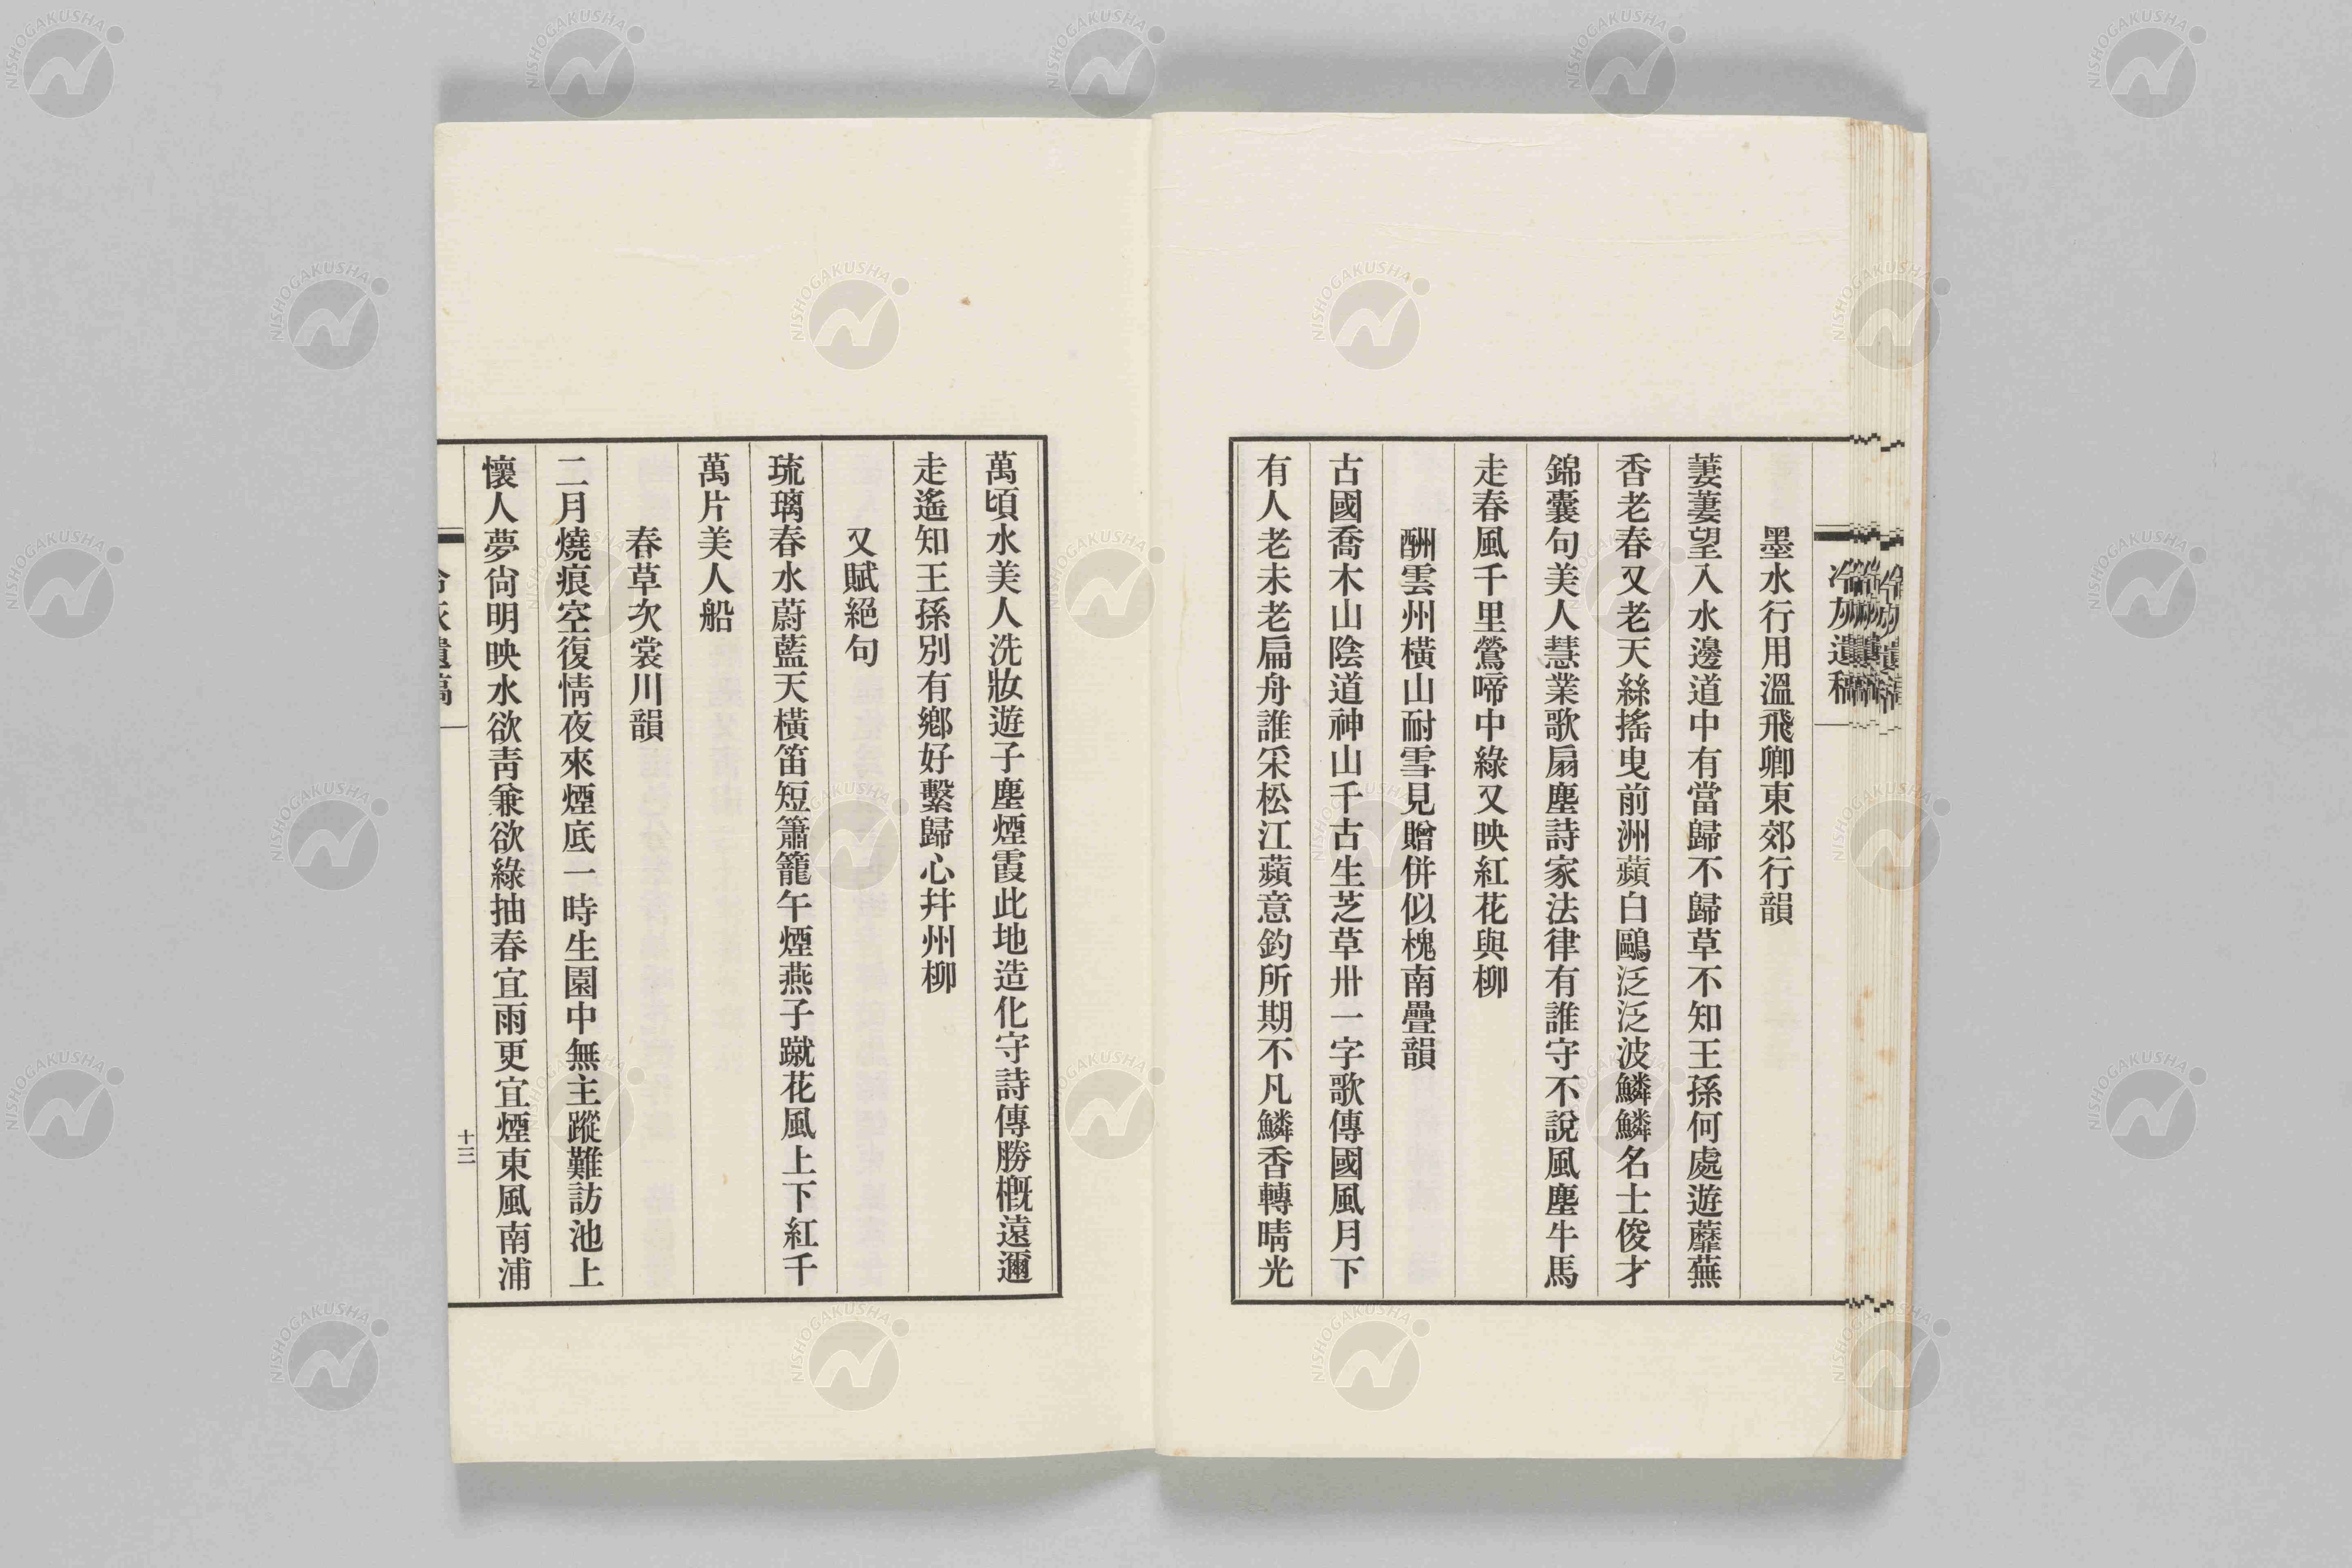 冷灰遺稿
墨水行用溫飛卿東郊行韻
萋萋望入水邊道中有當歸不歸草不知王孫何處遊蘼蕪
香老春又老天絲搖曳前洲蘋白鷗泛泛波鱗鱗名士俊才
錦囊句美人慧業歌扇塵詩家法律有誰守不說風塵牛馬
走春風千里鶯啼中綠又映紅花與柳
酬雲州橫山耐雪見贈併似槐南疊韻
古國喬木山陰道神山千古生芝草卅一字歌傳國風月下
有人老未老扁舟誰采松江蘋意釣所期不凡鱗香轉晴光
萬頃水美人洗妝遊子塵煙霞此地造化守詩傳勝概遠邇
走遙知王孫別有鄉好繫歸心幷州柳
又賦絕句
琉璃春水蔚藍天橫笛短簫籠午煙燕子蹴花風上下紅千
萬片美人船
春草次裳川韻
二月燒痕空復情夜來煙底一時生園中無主蹤難訪池上
懷人夢尙明映水欲靑兼欲綠抽春宜雨更宜煙東風南浦
十三
NISHOGAKUSHA